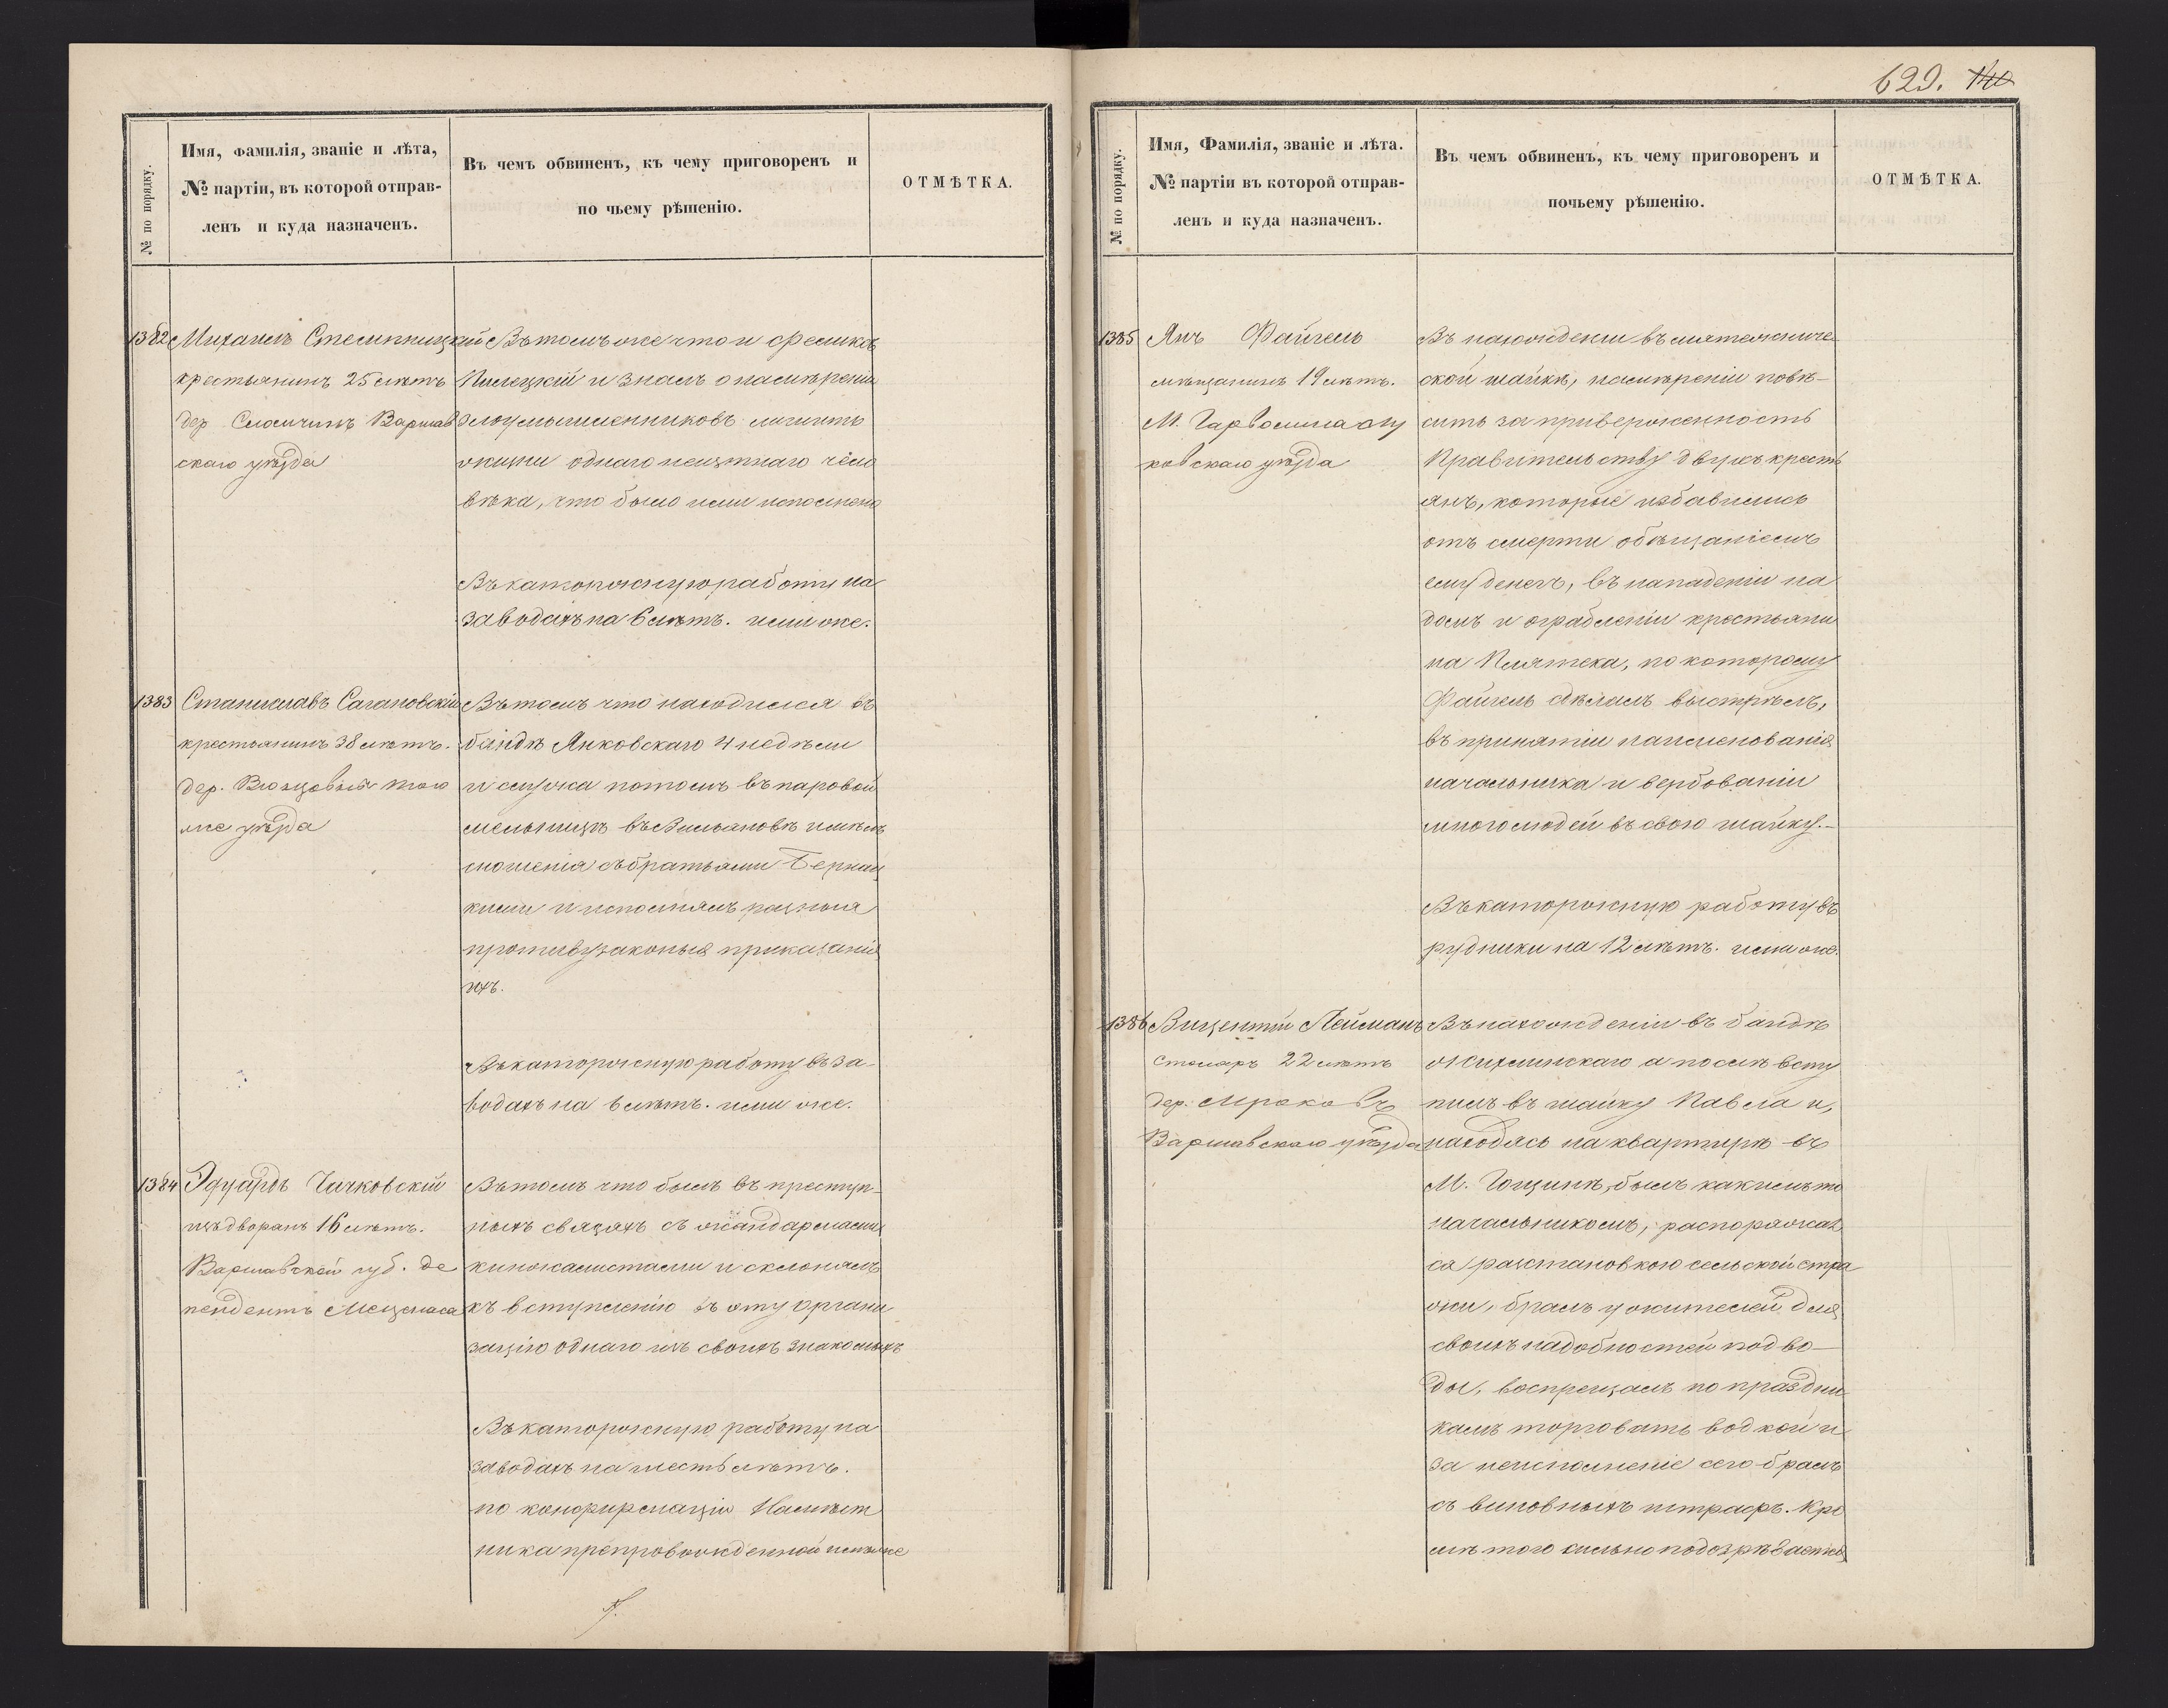 629. 140
№ по порядку.
Имя, фамилія, званіе и лѣта,
№ партіи, въ которой отправ-
ленъ и куда назначенъ.
Въ чемъ обвиненъ, къ чему приговоренъ и
по чьему рѣшенію.
ОТМѢТКА.
1382
Михаилъ
крестьянинъ 25 лѣтъ
дер. Варшав
скаго уѣзда
Въ томъ же что и Феликсъ
и зналъ о намѣреніи
злоумышленниковъ лишить
жизни одного неизвѣстнаго чело
вѣка, что было ими исполнено
Въ каторожную работу на
заводахъ на 6 лѣтъ. имъ же.
1383
Станиславъ Сагановскій
крестьянинъ 38 лѣтъ.
дер. того
же уѣзда
Въ томъ что находился въ
бандѣ Янковскаго 4 недѣли
и служа потомъ въ паровой
мельницѣ въ Вилановѣ имѣлъ
сношенія съ братьями
и исполнялъ разныя
противузаконыя приказанія
ихъ.
Въ каторожную работу въ за-
водахъ на 6 лѣтъ. имъ же.
1384
Эдуардъ Чичковскій
изъ дворянъ 16 лѣтъ.
Варшавской губ. де
пендентъ
Въ томъ что былъ въ преступ-
ныхъ связяхъ съ жандармами
кинжалистами и склонялъ
къ вступленію въ эту органи
зацію одного изъ своихъ знакомыхъ
Въ каторожную работу на
заводахъ на шесть лѣтъ.
по конфирмаціи Намѣст
ника препровожденной имъ же
№ по порядку.
Имя, Фамилія, званіе и лѣта.
№ партіи въ которой отправ-
ленъ и куда назначенъ.
Въ чемъ обвиненъ, къ чему приговоренъ и
почьему рѣшенію.
ОТМѢТКА.
1385
Янъ Файгель
мѣщанинъ 19 лѣтъ.
М. Гарволина Лу
ковскаго уѣзда
Въ нахожденіи въ мятежниче
ской шайкѣ, намѣреніи повѣ-
сить за приверженность
Правительству двухъ кресть
янъ, которые избавились
отъ смерти обѣщаніемъ
ему денегъ, въ нападеніи на
домъ и ограбленіи крестьяни
на Плятека, по которому
Файгель сдѣлалъ выстрѣлъ,
въ принятіи наименованія
начальника и вербованіи
много людей въ свою шайку.-
Въ каторожную работу въ
рудники на 12 лѣтъ. имъ же.
1386
Вицентій Лейманъ
столяръ 22 лѣтъ
дер. Мрокова
Варшавскаго уѣзда
Въ нахожденіи въ бандѣ
Жихлинскаго а послѣ всту
пилъ въ шайку Павла и,
находясь на квартирѣ въ
М. Гощинѣ, былъ какимъ то
начальникомъ, распоряжал
ся разстановкою сельской стра
жи, бралъ у жителей для
своихъ надобностей подво-
ды, воспрещалъ по праздни
камъ торговать водкой и
за неисполненіе сего бралъ
съ виновныхъ штрафъ. Кро
мѣ того сильно подозрѣвается